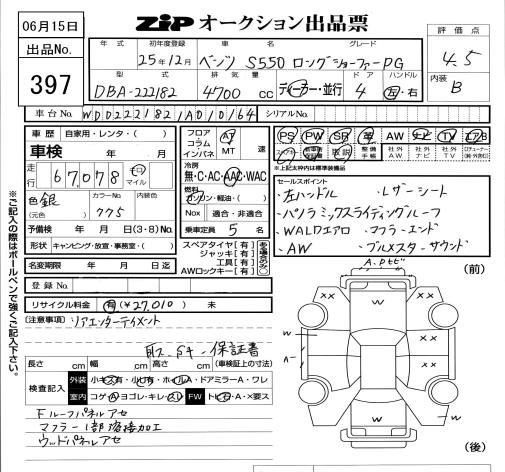 06月15日
出品No.
397
ZIP オークション出品票
評価点
4.5
内装
B
年式 初年度登録 車名 グレード
25年12月 ベンツ S550 ロングショーファーPG
型式 排気量 ドア ハンドル
DBA-222182 4700 cc ディーラー・並行 4 左・右
車台No. WDD2221821A010164 シリアルNo.
車歴 自家用・レンタ( )
車検 年 月
走行 67,078 キロ マイル
色 銀 (元色) カラーNo. 775 内装色
予備検 年 月 (3・8) No.
形状 キャンピング・放宣・事務室・( )
名変期限 年 月 日迄
登録No.
リサイクル料金 有 (¥27,010) 未
フロア コラム インパネ AT MT 速
冷房 無・C・AC・AAC・WAC
燃料 ガソリン・軽油・( )
Nox 適合・非適合
乗車定員 5 名
スペアタイヤ[有]
ジャッキ[有]
工具[有]
AWロックキー[有]
PS PW SR 革 AW ナビ TV エアB
取説 整備手帳 社外AW 社外ナビ 社外TV
※上記太枠内は標準装備品
セールスポイント
・左ハンドル ・レザーシート
・パノラミックスライディングルーフ
・WALDエアロ ・マフラーエンド
・AW ・ブルメスターサウンド
[注意事項] リアエンターテイメント
取説 保証書
長さ cm 幅 cm 高さ cm (車検証上の寸法)
検査記入 外装 小キズ有・小ヒ有・ホイルA・ドアミラーA・ワレ
室内 コゲ・A・ヨゴレ・キレ・スレ FW トビ石・A・×要ス
Fルーフパネルアセ
マフラー1部溶接加工
ウッドパネルアセ
※ご記入の際はボールペンで強くご記入下さい。
(前)
W
××
××
W
W
××
A-
××
W
(後)